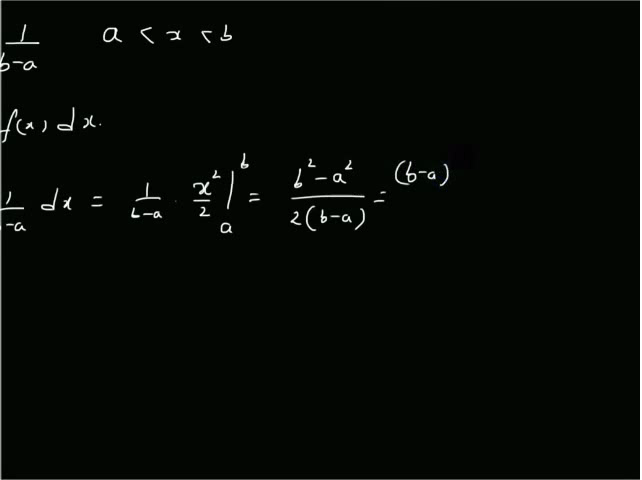 1/(b-a)   a < x < b
f(x) dx.
1/(b-a) dx = 1/(b-a) · x²/2 |ₐᵇ = (b² - a²)/(2(b-a)) = (b-a)